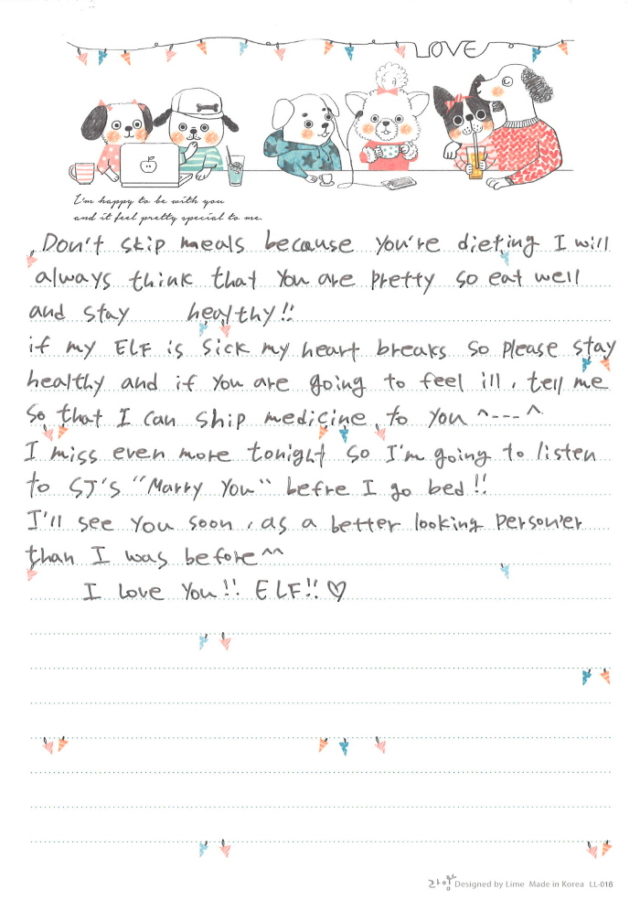 LOVE
I'm happy to be with you
and it feel pretty special to me.
, Don't skip meals because you're dieting I will
always think that you are pretty so eat well
and stay healthy!!
if my ELF is sick my heart breaks so please stay
healthy and if you are going to feel ill, tell me
so that I can ship medicine to you ^---^
I miss even more tonight so I'm going to listen
to SJ's "Marry You" befre I go bed!!
I'll see you soon, as a better looking person'er
than I was before^^
I love you!! ELF!! ♡
라임 Designed by Lime Made in Korea LL-016